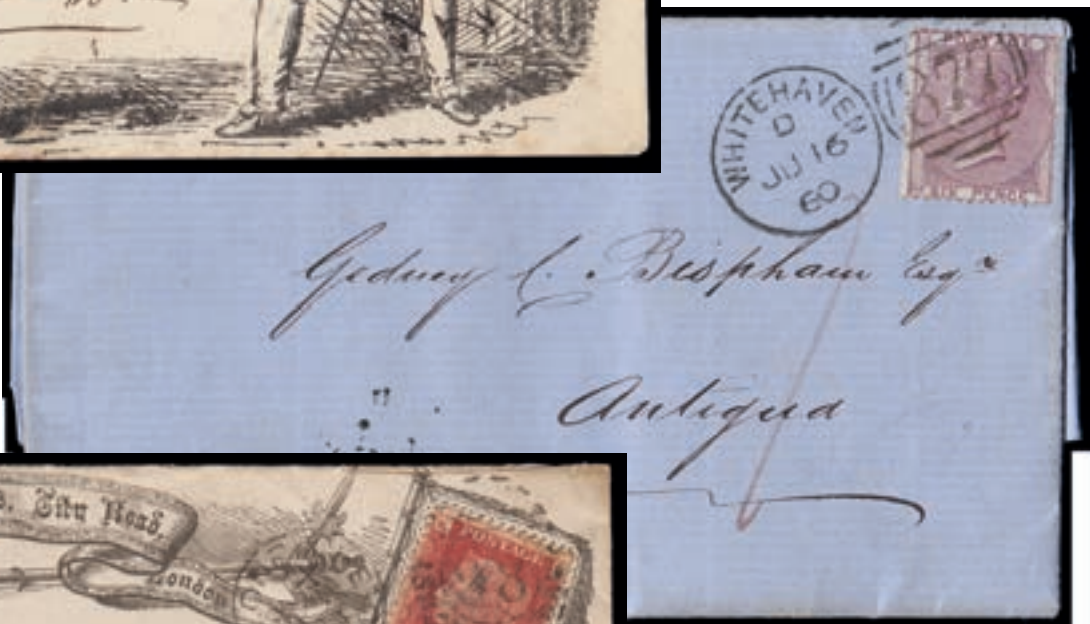 WHITEHAVEN
D
JU 16
60
877
SIX PENCE
Gedney C. Bispham Esqr
Antigua
1
City Road.
London
POSTAGE